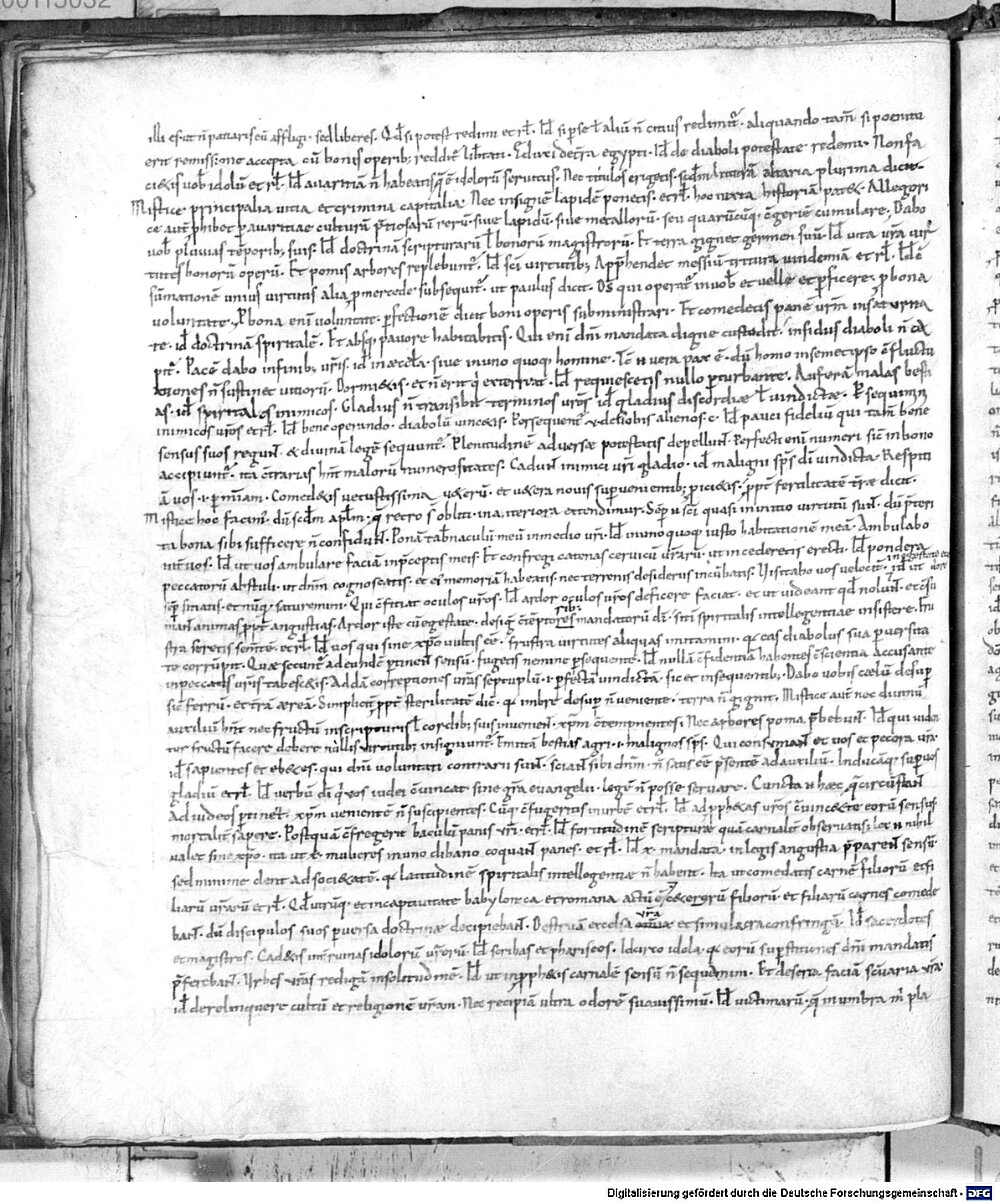 00115032
illi eſ· ut ñ patiariſ eū affligi· ſed liberes· Qd̄ ſi poteſt redimi et rł· Id̄ ſi p ſe ł aliū ñ citius redimit̄· aliquando tam̄ ſi poenitu
erit remiſſione accepta cū boniſ operib; reddit̄ libtati· Eduxi de tr̄a egypti· Id̄ de diaboli poteſtate redemi· Non fa
ci&iſ vob̄ idolū et rł· Id̄ avaritiā ñ habeatiſ q̄ ē idolorū ſervituſ· Nec titulos erigetiſ· ſcdm̄ litterā altaria plurima dicit·
Miſtice principalia vitia et crimina capitalia· Nec inſigne lapidē ponetiſ· et rł· hoc iuxta hiſtoriā pat&· Allegori
ce aut̄ phibet p avaritiae culturā p̄tioſarū rerū· ſive lapidū· ſive metallorū· ſeu quarūcūq; c̄geriē cumulare· Dabo
vob̄ pluviaſ tēporib; ſuiſ· Id̄ doctrinā ſcripturarū ł bonorū magiſtrorū· Et terra gignet germen ſuū· Id̄ vita vr̄a vir
tuteſ bonorū operū· Et pomiſ arboreſ replebunt̄· Id̄ ſci virtutib; Apphendet meſſiū tritura vindemiā et rł· Id̄ ē
ſūmationē uniuſ virtutiſ alia p mercede ſubſequit̄· ut pauluſ dicit· Dſ̄ qui operat̄ in vob̄ et velle et pficere· p bona
voluntate· P bona eni voluntati· pfectionē dicit boni operiſ ſubminiſtrari· Et comedetiſ panē vr̄m in ſaturita
te· id̄ doctrinā ſpiritalē· Et abſq; pavore habitabitiſ· Qui eni dn̄i mandata digne cuſtodit· inſidiiſ diaboli ñ ca
pit̄· Pacē dabo in finib; vr̄iſ· id̄ in aeccła· ſive in uno quoq; homine· Tc̄ ñ vera pax ē· dū homo in ſemetipſo c̄fluctu
tioneſ ñ ſuſtinet vitiorū· Dormi&iſ· et ñ erit q̄ exterreat· Id̄ requieſcetiſ nullo pturbante· Auferā malaſ beſti
aſ· id̄ ſpiritaleſ inimicoſ· Gladiuſ ñ tranſibit terminoſ vr̄oſ· id̄ gladiuſ diſcordiae ł vindictae· Perſequimini
inimicoſ vr̄oſ et rł· Id̄ bene operando· diabolū vinc&iſ· Porſequent̄ v· de vobiſ alienoſ· c· Id̄ pauci fideliū qui tam̄ bene
ſenſuſ ſuoſ regun̄t· & divinā legē ſequunt̄· Plenitudinē adverſae poteſtatiſ depellun̄t· Perfecti eni numeri ſic̄ in bono
accipiunt̄· ita c̄trariaſ hn̄t malorū numeroſitateſ· Cadun̄t inimici vr̄i gladio· id̄ maligni ſpſ̄ dī vindicta· Reſpici
ā voſ· i· p mīam· Comed&iſ vetuſtiſſima v&erū· et v&era noviſ ſupvenientib; pici&iſ· ppt̄ fertilitatē tr̄ae dicit·
Miſtice hoc facim̄· dū ſcdm̄ aplm̄· q̄ retro ſ̄ obliti· in anteriora extendimur· Sep v ſci quaſi in initio virtutū ſun̄t· dū p̄teri
ta bona ſibi ſufficere ñ confidun̄t· Ponā tabnaculū meū in medio vr̄i· Id̄ in uno quoq; iuſto habitationē meā· Ambulabo
int̄ voſ· Id̄ ut voſ ambulare faciā in p̄ceptiſ meiſ· Et confregi catenaſ cervicū vr̄arū· ut incederetiſ erecti· Id̄ pondera
peccatorū abſtuli· ut dn̄m cognoſcatiſ· et eiſ memoriā habeatiſ· nec terreniſ deſideriiſ incūbatiſ· Viſitabo voſ velociter in egeſtate et ardore
ſep ſitiatiſ· et nūq; ſaturemini· Qui c̄ficiat oculoſ vr̄oſ· Id̄ ardor oculoſ vr̄oſ deficere faciat· et ut videant qd̄ nolun̄t· et c̄ſu
mat animaſ ppt̄ anguſtiaſ· Ardor iſte cū egeſtate· deſig· c̄teptorib; mandatorū dī· ſiti ſpiritaliſ intellegentiae inſiſtere· Fru
ſtra ſeretiſ ſem̄te· et rł· Id̄ voſ qui ſine xp̄o vultiſ eē· Fruſtra virtuteſ aliquaſ imitamini· q̄ eaſ diabolus ſua pverſita
te corrupit· Quae ſecunt̄ ad eundē ptinen̄t ſenſū· fugetiſ nemine pſequente· Id̄ nullā c̄fidentiā habenteſ c̄ſcientia accuſante
in peccatiſ vr̄iſ tabeſc&iſ· Addā correptioneſ vr̄aſ ſeptuplū· i· pfectā vindictā· ſic et in ſequentib; Dabo vobiſ coelū deſup
ſic̄ ferrū· et tr̄ā aereā· Simplicit̄ ppt̄ ſterilitatē dic̄· q̄ imbre deſup ñ veniente· terra ñ gignit· Miſtice aut̄ nec divinū
auxiliū hn̄t nec fructū in ſcripturiſ ł cordib; ſuiſ inveniun̄t· xp̄m c̄temnenteſ· Nec arboreſ poma p̄bebun̄t· Id̄ qui viden
tur fructū facere debere nulliſ virtutib; inſigniunt̄· Emittā beſtiaſ agri· i· malignoſ ſpſ̄· Qui conſumant et voſ et pecora vr̄a·
id̄ ſapienteſ et eb&eſ· qui dn̄i voluntati contrarii ſun̄t· ſcian̄t ſibi dn̄m· ñ ſatiſ eē p̄ſente ad auxiliū· Inducāq; ſup voſ
gladiū et rł· Id̄ verbū dī q̄ voſ iudei c̄vincat ſine gr̄a evangelii· legē ñ poſſe ſervare· Cuncta ñ haec q̄ circūſtan̄t
Ad iudeoſ ptinet· xp̄m veniente ñ ſuſcipienteſ· Cūq; c̄fugeritiſ in urbē et rł· Id̄ ad pph&aſ vr̄oſ c̄vinc&e eorū ſenſuſ
mortalit̄ ſapere· Poſtquā c̄fregerit baculū paniſ vr̄i· et rł· Id̄ fortitudinē ſcripturae quā carnalit̄ obſervatiſ; lex ñ nihil
valet ſine xp̄o· ita ut x· mulieres in uno clibano coquan̄t paneſ· et rł· Id̄ x· mandata· in legiſ anguſtia p̄paren̄t ſenſū·
ſed minime dent ad ſoci&atē· q̄ latitudinē ſpiritaliſ intellegentiae ñ habent· Ita ut comedatiſ carnē filiorū et fi
liarū vr̄arū et rł· Qd̄ utrūq; et in captivitate babylonica et romana actū ē· c&erū filiorū· et filiarū carneſ comede
ban̄t· dū diſcipuloſ ſuoſ pverſa doctrina decipieban̄t· Deſtruā excelſa vr̄a et ſimulacra confringā· Id̄ ſacerdoteſ
et magiſtroſ· Cad&iſ int̄ ruinaſ idolorū vr̄orū· Id̄ ſcribaſ et phariſeoſ· Idcirco idola· q̄ eorū ſupſtitioneſ dn̄i mandatiſ
p̄fereban̄t· Urbeſ vr̄aſ redigā in ſolitudinē· Id̄ ut in pph&iſ carnalē ſenſū ñ ſequamini· Et deſerta faciā ſc̄uaria vr̄a·
id̄ derelinquere cultū et religionē vr̄am· Nec recipiā ultra odorē ſuaviſſimū· Id̄ victimarū· q̄ in umbra m̄ pla
Digitalisierung gefördert durch die Deutsche Forschungsgemeinschaft - DFG